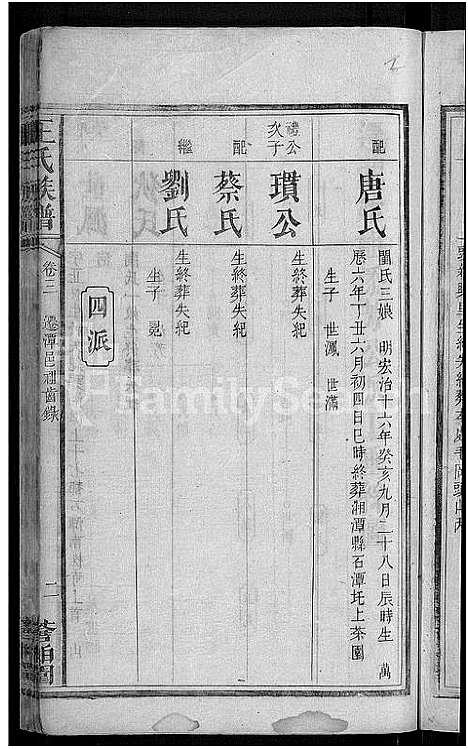 配
唐氏
閶氏三娘 明宏治十六年癸亥九月二十八日辰時生 萬
厯六年丁丑六月初四日巳時終葬湘潭縣石潭圫上茶園
生子 世鳳 世滿
禮公
次子
瓆公
生終葬失紀
配
蔡氏
生終葬失紀
繼
劉氏
生終葬失紀
生子 冕
四派
王氏族譜
卷三 遷潭邑祖齒錄
二
FamilySearch